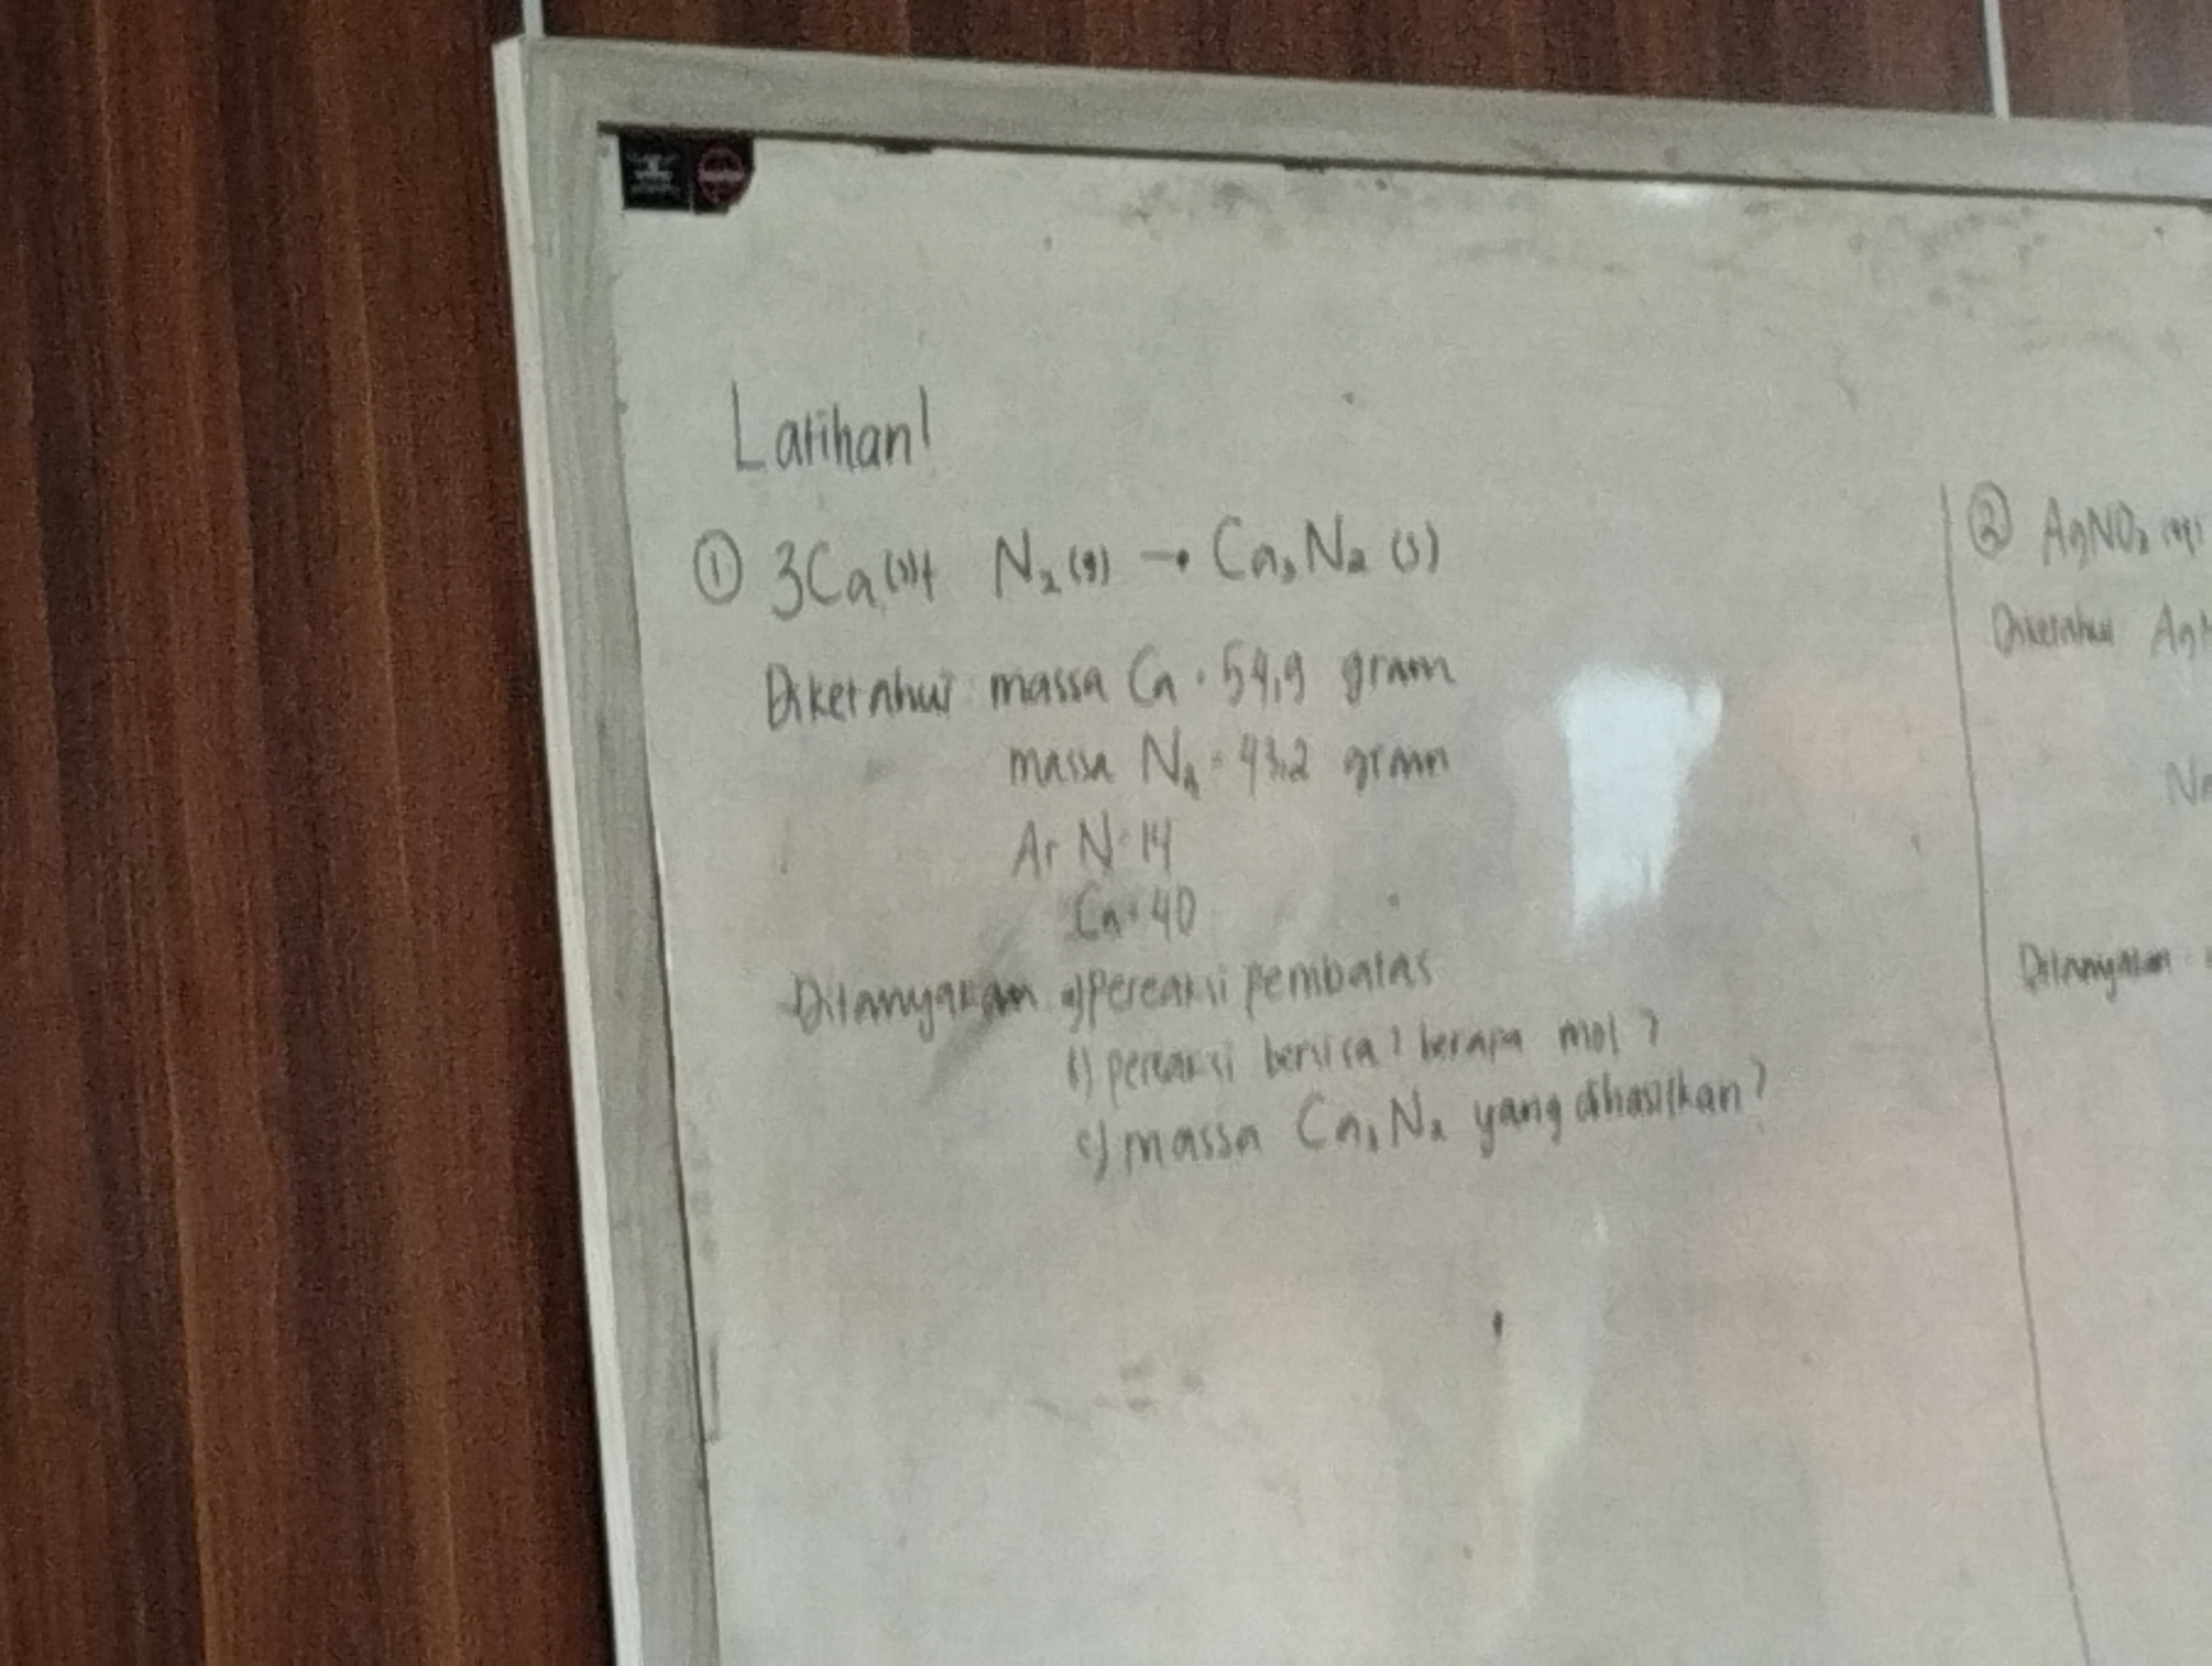 Latihan!
① 3Ca(s) + N₂(g) → Ca₃N₂ (s)
Diketahui massa Ca = 54,9 gram
massa N₂ = 43,2 gram
Ar N = 14
Ca = 40
Ditanyakan a) Pereaksi pembatas
b) pereaksi bersisa? berapa mol?
c) massa Ca₃N₂ yang dihasilkan?
② AgNO₃
Diketahui
Ditanyakan